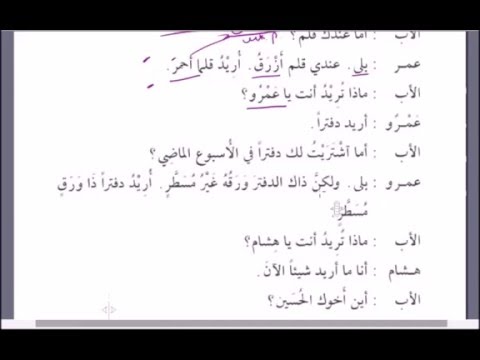 الأب : أما عندك قلم؟
عمـر : بلى. عندي قلم أَزْرَقُ. أُرِيْدُ قلما أَحمرَ.
الأب : ماذا تُرِيْدُ أنت يا عَمْرُو؟
عَمْـرٌو : أريد دفتراً.
الأب : أما ٱشْتَرَيْتُ لك دفتراً في الأُسبوع الماضِي؟
عمـرو : بلى. ولكِنَّ ذاك الدفترَ وَرَقُهُ غَيْرُ مُسَطَّرٍ. أُرِيْدُ دفتراً ذَا وَرَقٍ
مُسَطَّرٍ.
الأب : ماذا تُرِيدُ أنت يا هِشام؟
هـشام : أنا ما أريد شيئاً الآنَ.
الأب : أين أَخوك الحُسَين؟